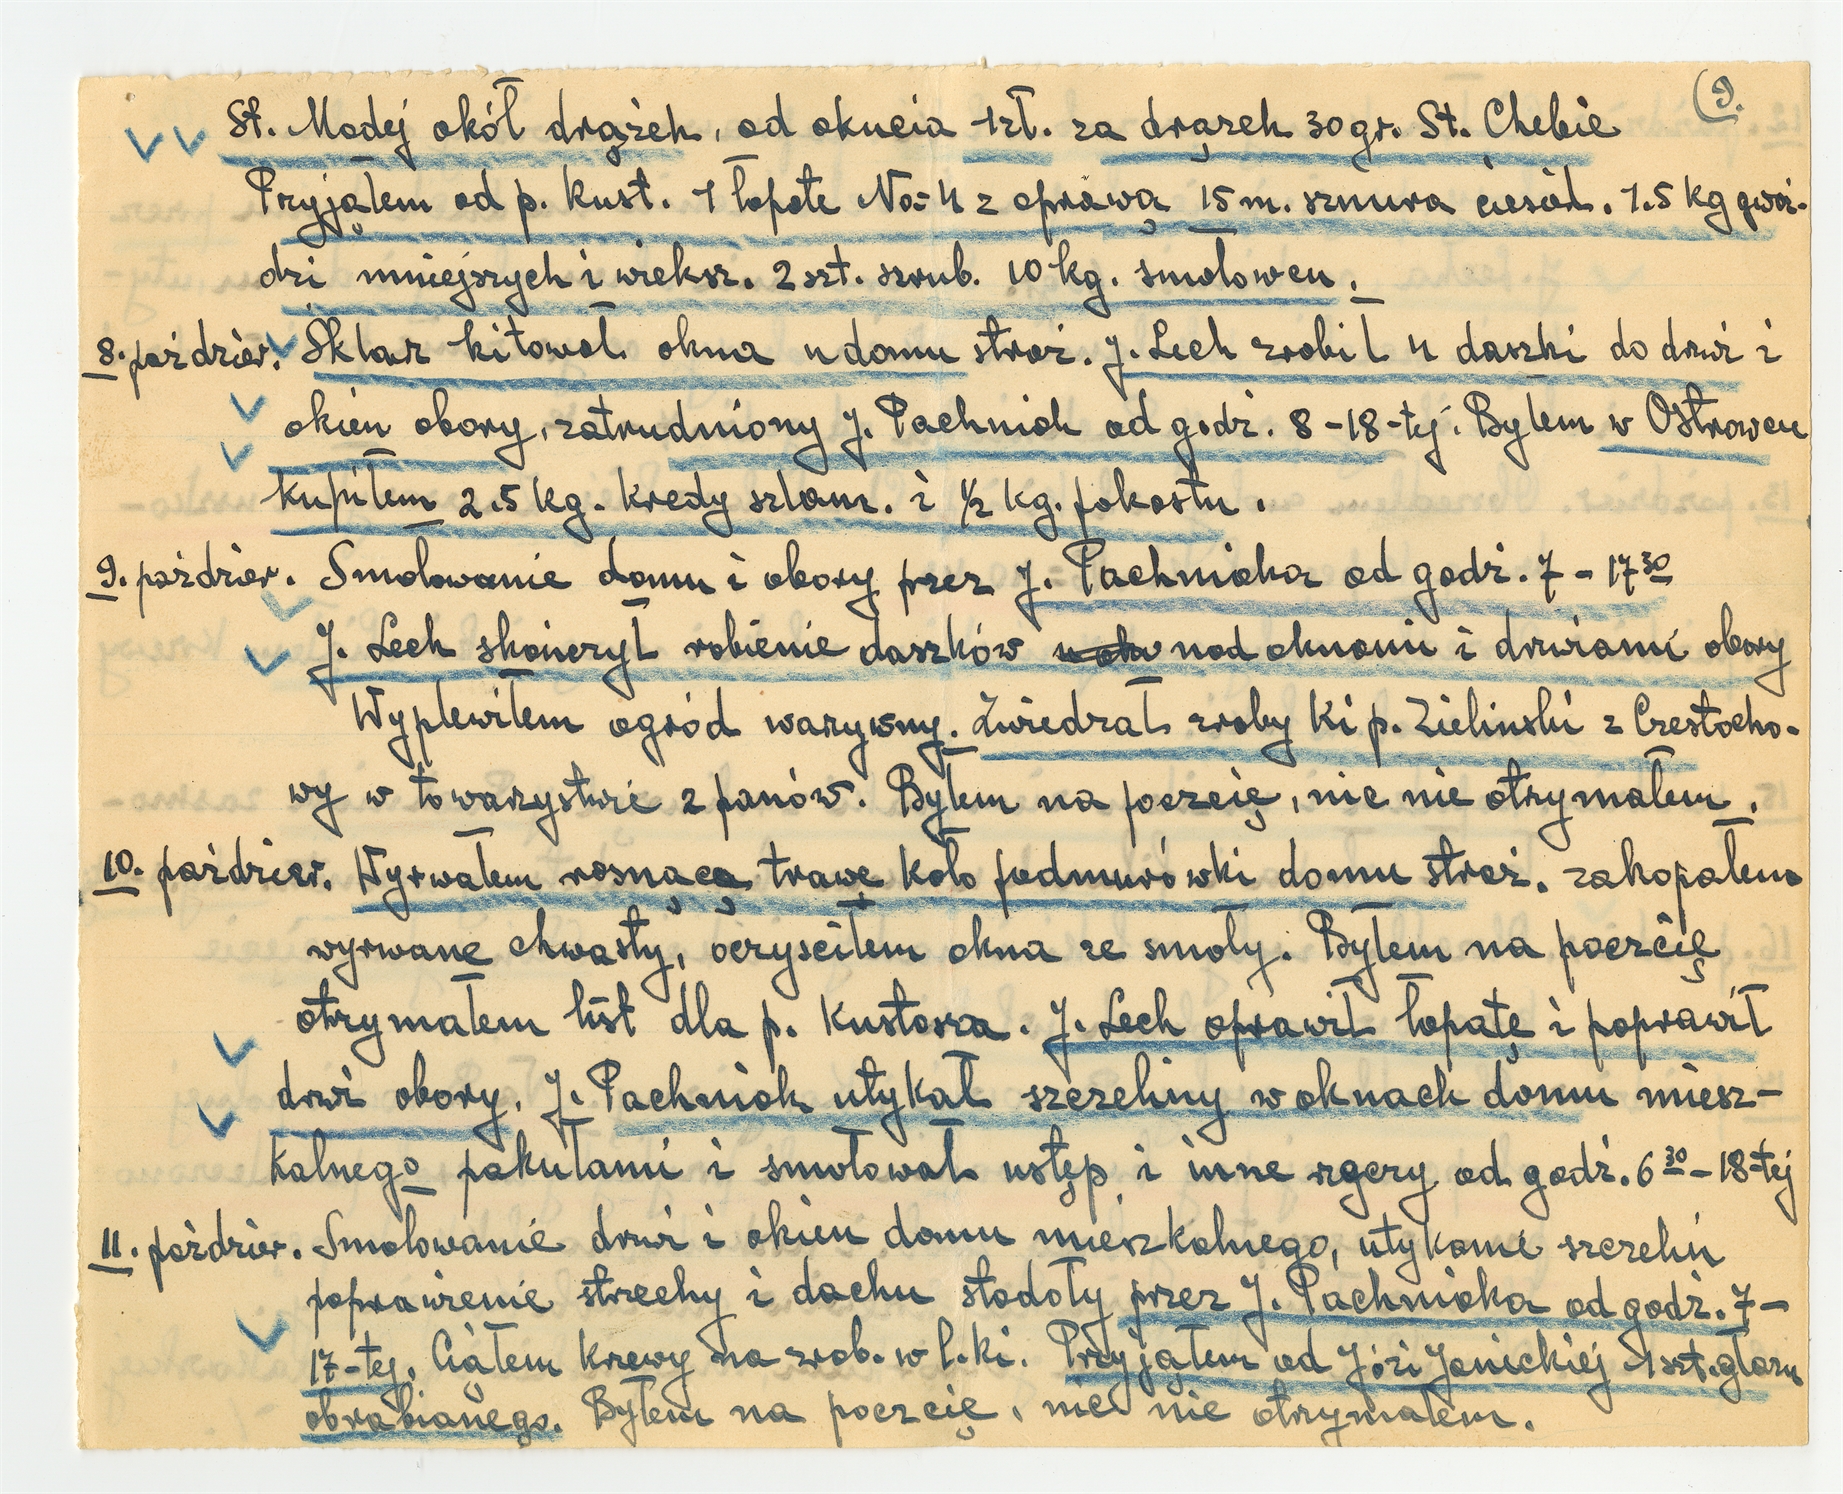 (9.
St. Madej okół drążek, od okucia 1 zł. za drążek 30 gr. St. Chebie
Pryjąłem od p. Kust. 1 łopate No= 4 z oprawą 15 m. sznura ciesiel. 1.5 kg gwoź-
dzi mniejszych i wieksz. 2 szt. szrub. 10 kg. smołowcu.
8. paździer. Sklarz kitował okna u domu stróż. J. Lech zrobił 4 daszki do drzwi i
okien obory, zatrudniony J. Pachniak od godz. 8-18-tej. Byłem w Ostrowcu
kupiłem 2.5 kg. kredy szlam. i ½ kg. pokostu.
9. paździer. Smołowanie domu i obory przez J. Pachniaka od godz. 7 - 17 30
J. Lech skończył robienie daszków nad oknami i drzwiami obory
Wyplewiłem ogród warzywny. Zwiedzał wroby ki p. Zielinski z Czestocho-
wy w towarzystwie 2 panów. Byłem na poczcię, nic nie otrymałem.
10. paździer. Wyrwałem rosnącą trawę koło podmurówki domu stróż. zakopałem
wyrwane chwasty, oczysciłem okna ze smoły. Byłem na poczcię
otrymałem list dla p. Kustosza. J. Lech oprawił łopatę i poprawił
drzwi obory. J. Pachniak utykał szczeliny w oknach domu miesz-
kalnego pakułami i smołował ustęp i inne rzeczy od godz. 6 30 - 18-tej
11. paździer. Smołowanie drzwi i okien domu mieszkalnego, utykanie szczelin
poprawienie strzechy i dachu stodoły przez J. Pachniaka od godz. 7 -
17-tej. Ciąłem krzewy na zrob. w l.ki. Przyjąłem od Józi Janickiej 1 szt. głazu
obrabianego. Byłem na poczcię, nic nie otrymałem.